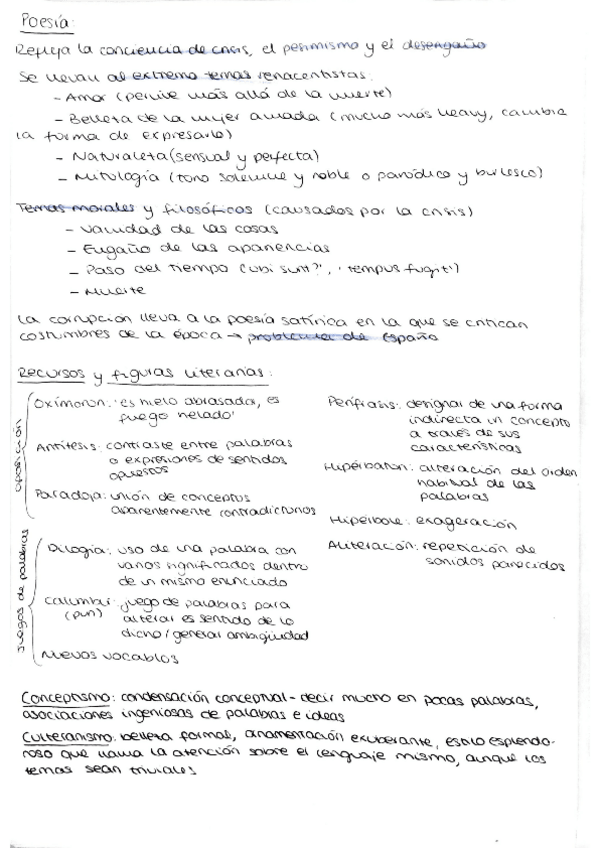 Poesía:
Refleja la conciencia de crisis, el pesimismo y el desengaño
Se llevan al extremo temas renacentistas:
- Amor (pervive más allá de la muerte)
- Belleza de la mujer amada (mucho más heavy, cambia
la forma de expresarlo)
- Naturaleza (sensual y perfecta)
- Mitología (tono solemne y noble o paródico y burlesco)
Temas morales y filosóficos (causados por la crisis)
- Vanidad de las cosas
- Engaño de las apariencias
- Paso del tiempo ('ubi sunt?', 'tempus fugit')
- Muerte
La corrupción lleva a la poesía satírica en la que se critican
costumbres de la época → problemas de España
Recursos y figuras literarias:
oposición
Oxímoron: 'es hielo abrasador, es
fuego helado'
Antítesis: contraste entre palabras
o expresiones de sentidos
opuestos
Paradoja: unión de conceptos
aparentemente contradictorios
Juegos de palabras
Dilogía: uso de una palabra con
varios significados dentro
de un mismo enunciado
Calambur: juego de palabras para
(pun) alterar es sentido de lo
dicho / generar ambigüedad
Nuevos vocablos
Perífrasis: designar de una forma
indirecta un concepto
a través de sus
características
Hipérbaton: alteración del orden
habitual de las
palabras
Hipérbole: exageración
Aliteración: repetición de
sonidos parecidos
Conceptismo: condensación conceptual - decir mucho en pocas palabras,
asociaciones ingeniosas de palabras e ideas
Culteranismo: belleza formal, ornamentación exuberante, estilo esplendo-
roso que llama la atención sobre el lenguaje mismo, aunque los
temas sean triviales